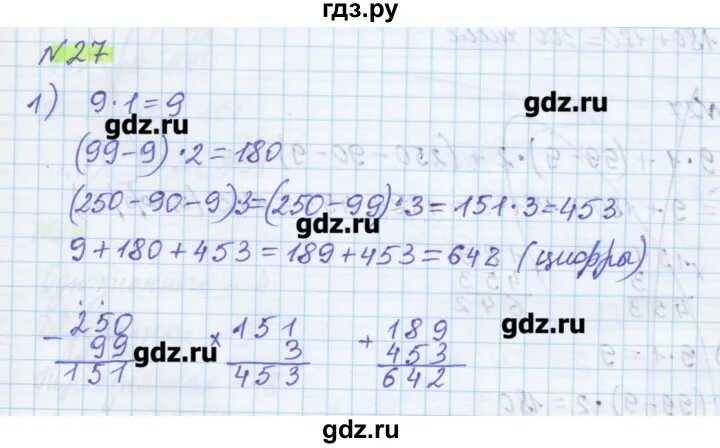 гдз.ру
№27
1) 9·1=9
gdz.ru gdz.ru
(99-9)·2=180
(250-90-9)3=(250-99)·3=151·3=453
gdz.ru
9+180+453=189+453=642 (цифры)
- 250
99
151
× 151
3
453
+ 189
453
642
gdz.ru gdz.ru
gdz.ru gdz.ru